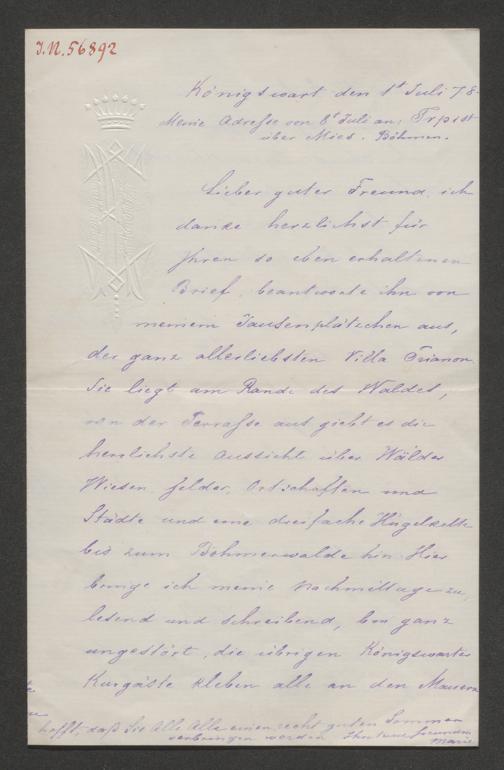 J.N. 56892
Königswart den 1t Juli 78
Meine Adresse von 8t Juli an: Trpist
über Mies. Böhmen.
Lieber guter Freund, ich
danke herzlichst für
Ihren so eben erhaltenen
Brief, beantworte ihn von
meinem Jausenplätzchen aus,
der ganz allerliebsten Villa Trianon
Sie liegt am Rande des Waldes,
von der Terrasse aus giebt es die
herrlichste Aussicht über Wälder
Wiesen, Felder, Ortschaften und
Städte und eine dreifache Hügelkette
bis zum Böhmerwalde hin. Hier
bringe ich meine Nachmittage zu,
lesend und schreibend, bin ganz
ungestört, die übrigen Königswarter
Kurgäste kleben alle an den Mauern
hofft, daß Sie Alle Alle einen recht guten Sommer
verbringen werden Ihre treue Freundin
Marie